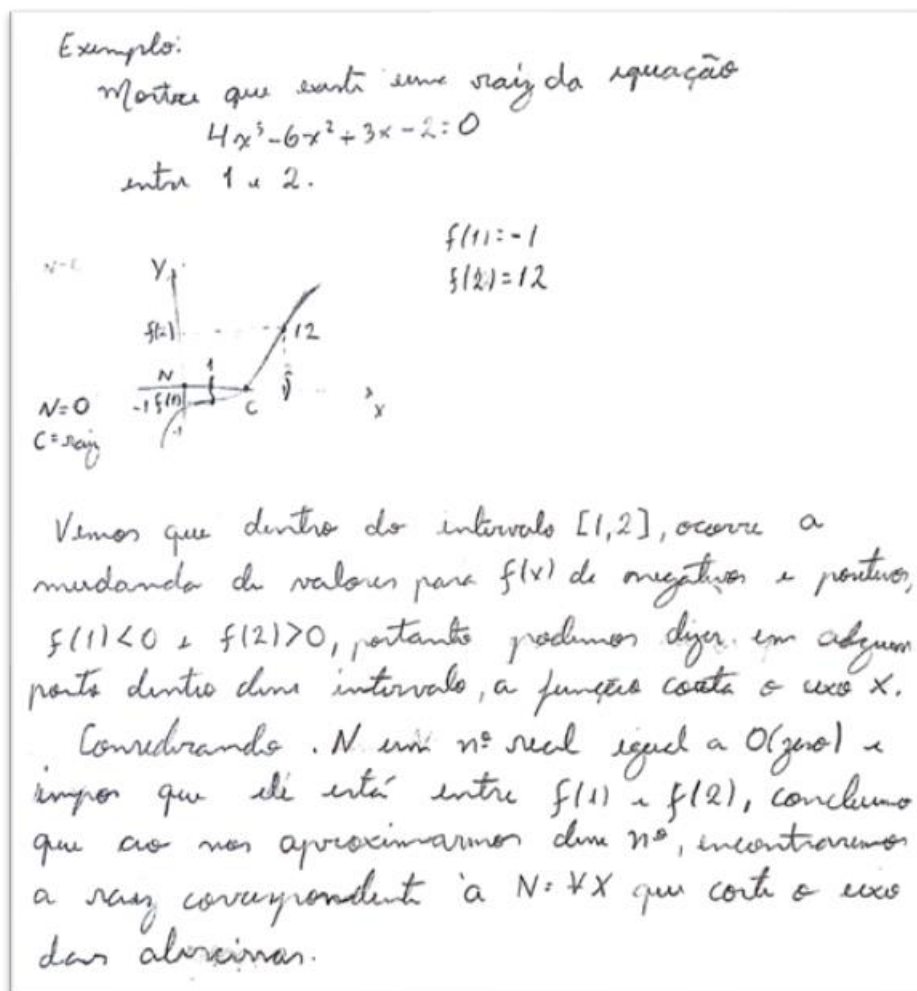 Exemplo:
Mostre que existe uma raiz da equação
4x³-6x²+3x-2=0
entre 1 e 2.
f(1)=-1
f(2)=12
Y
f(2)
12
N
1
2
-1 f(1)
C
X
-1
N=0
C=raiz
Vemos que dentro do intervalo [1,2], ocorre a
mudanda de valores para f(x) de negativos e positivos,
f(1)<0 e f(2)>0, portanto podemos dizer em algum
ponto dentro desse intervalo, a função corta o eixo X.
Considerando . N um nº real igual a 0(zero) e
impor que ele está entre f(1) e f(2), concluimo
que ao nos aproximarmos desse nº, encontraremos
a raiz correspondente à N: ∀X que corte o eixo
das abscissas.